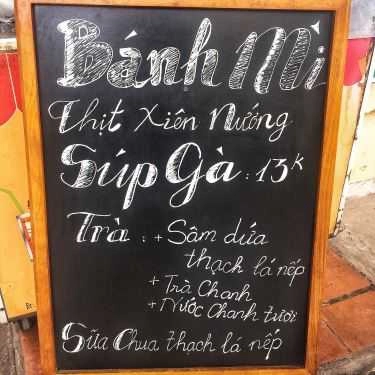 Bánh Mì
Thịt Xiên Nướng
Súp Gà : 13k
Trà : + Sâm dứa
thạch lá nếp
+ Trà Chanh
+ Nước Chanh tươi
Sữa Chua thạch lá nếp